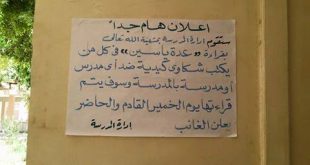 إعلان هام جداً
ستقوم إدارة المدرسة بمشيئة الله تعالى
بقراءة "عدية ياسين" في كل من
يكتب شكاوى كيدية ضد أى مدرس
أو مدرسة بالمدرسة وسوف يتم
قراءتها يوم الخميس القادم والحاضر
يعلن الغائب
إدارة المدرسة